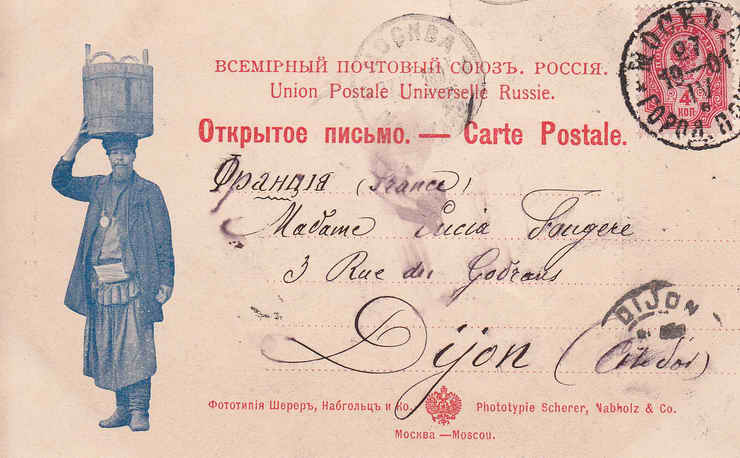 МОСКВА
ВСЕМІРНЫЙ ПОЧТОВЫЙ СОЮЗЪ. РОССІЯ.
Union Postale Universelle Russie.
4
КОП
Открытое письмо. — Carte Postale.
Франція (France)
Madame Lucia Fougere
3 Rue des Godrans
Dijon (Côte d'or)
DIJON
Фототипія Шереръ, Набгольцъ и Ко. Phototypie Scherer, Nabholz & Co.
Москва — Moscou.